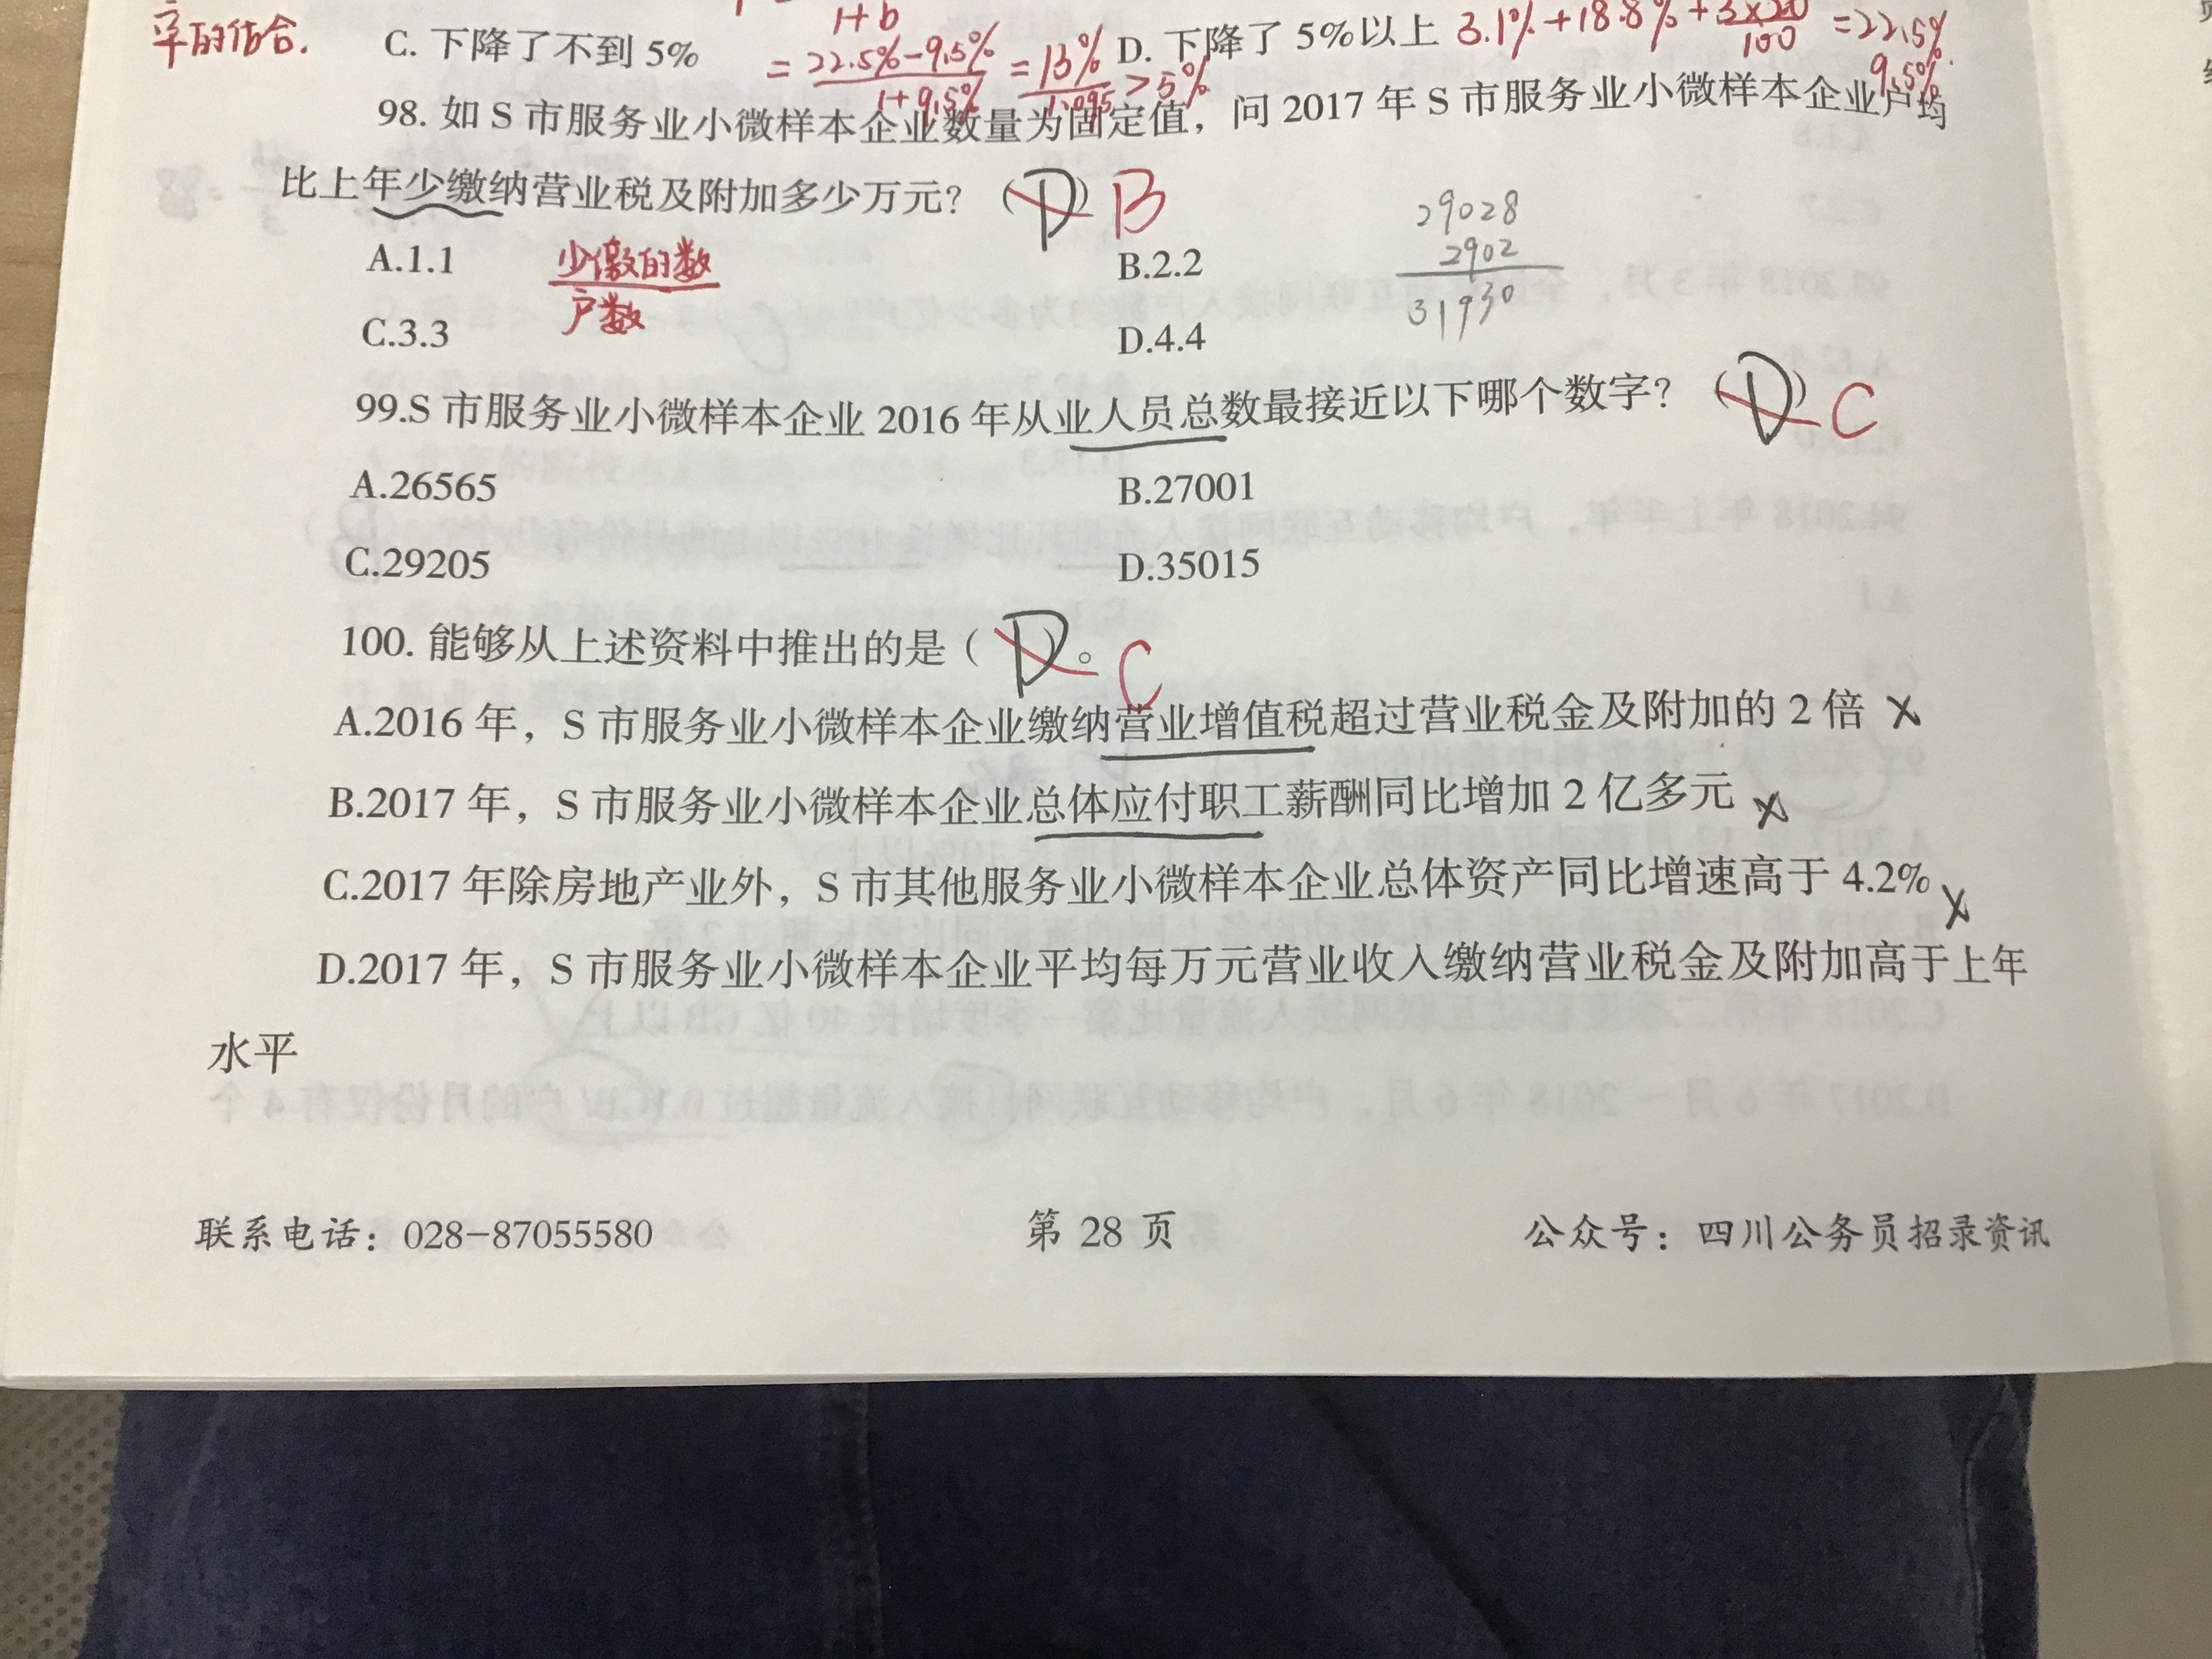 率的结合.
1+b
C. 下降了不到 5%
D. 下降了 5%以上 3.1%+18.8%+3×20/100=22.5%
=22.5%-9.5%/1+9.5%=13%/1.095>5%
9.5%.
98. 如 S 市服务业小微样本企业数量为固定值，问 2017 年 S 市服务业小微样本企业户均
比上年少缴纳营业税及附加多少万元？（D）B
A.1.1
少缴的数
户数
B.2.2
29028
2902
31930
C.3.3
D.4.4
99.S 市服务业小微样本企业 2016 年从业人员总数最接近以下哪个数字？（D）C
A.26565
B.27001
C.29205
D.35015
100. 能够从上述资料中推出的是（D）。C
A.2016 年，S 市服务业小微样本企业缴纳营业增值税超过营业税金及附加的 2 倍 ×
B.2017 年，S 市服务业小微样本企业总体应付职工薪酬同比增加 2 亿多元 ×
C.2017 年除房地产业外，S 市其他服务业小微样本企业总体资产同比增速高于 4.2% ×
D.2017 年，S 市服务业小微样本企业平均每万元营业收入缴纳营业税金及附加高于上年
水平
联系电话：028-87055580
第 28 页
公众号：四川公务员招录资讯